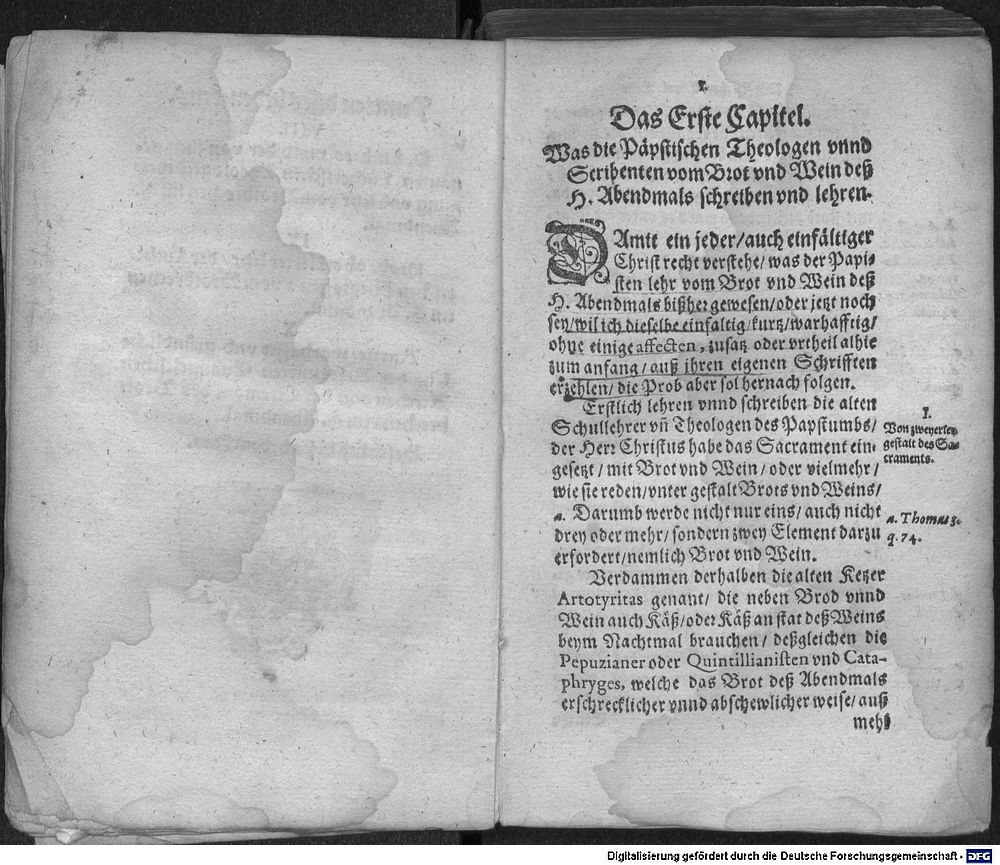 1.
Das Erste Capitel.
Was die Päpstischen Theologen vnnd
Scribenten vom Brot vnd Wein deß
H. Abendmals schreiben vnd lehren.
DAmit ein jeder/auch einfältiger
Christ recht verstehe/was der Papi-
sten lehr vom Brot vnd Wein deß
H. Abendmals bißher gewesen/oder jetzt noch
sey/wil ich dieselbe einfaltig/kurtz/warhafftig/
ohne einige affecten, zusatz oder vrtheil alhie
zum anfang/auß ihren eigenen Schrifften
erzehlen/die Prob aber sol hernach folgen.
Erstlich lehren vnnd schreiben die alten
Schullehrer vñ Theologen des Papstumbs/
der Herr Christus habe das Sacrament ein-
gesetzt/mit Brot vnd Wein/oder vielmehr/
wie sie reden/vnter gestalt Brots vnd Weins/
a. Darumb werde nicht nur eins/auch nicht
drey oder mehr/sondern zwey Element darzu
erfordert/nemlich Brot vnd Wein.
Verdammen derhalben die alten Ketzer
Artotyritas genant/die neben Brod vnnd
Wein auch Käß/oder Käß an stat deß Weins
beym Nachtmal brauchen/deßgleichen die
Pepuzianer oder Quintillianisten vnd Cata-
phryges, welche das Brot deß Abendmals
erschrecklicher vnnd abschewlicher weise/auß
mehl
1.
Von zweyerley
gestalt des Sa-
craments.
a. Thomas 3.
q. 74.
Digitalisierung gefördert durch die Deutsche Forschungsgemeinschaft - DFG